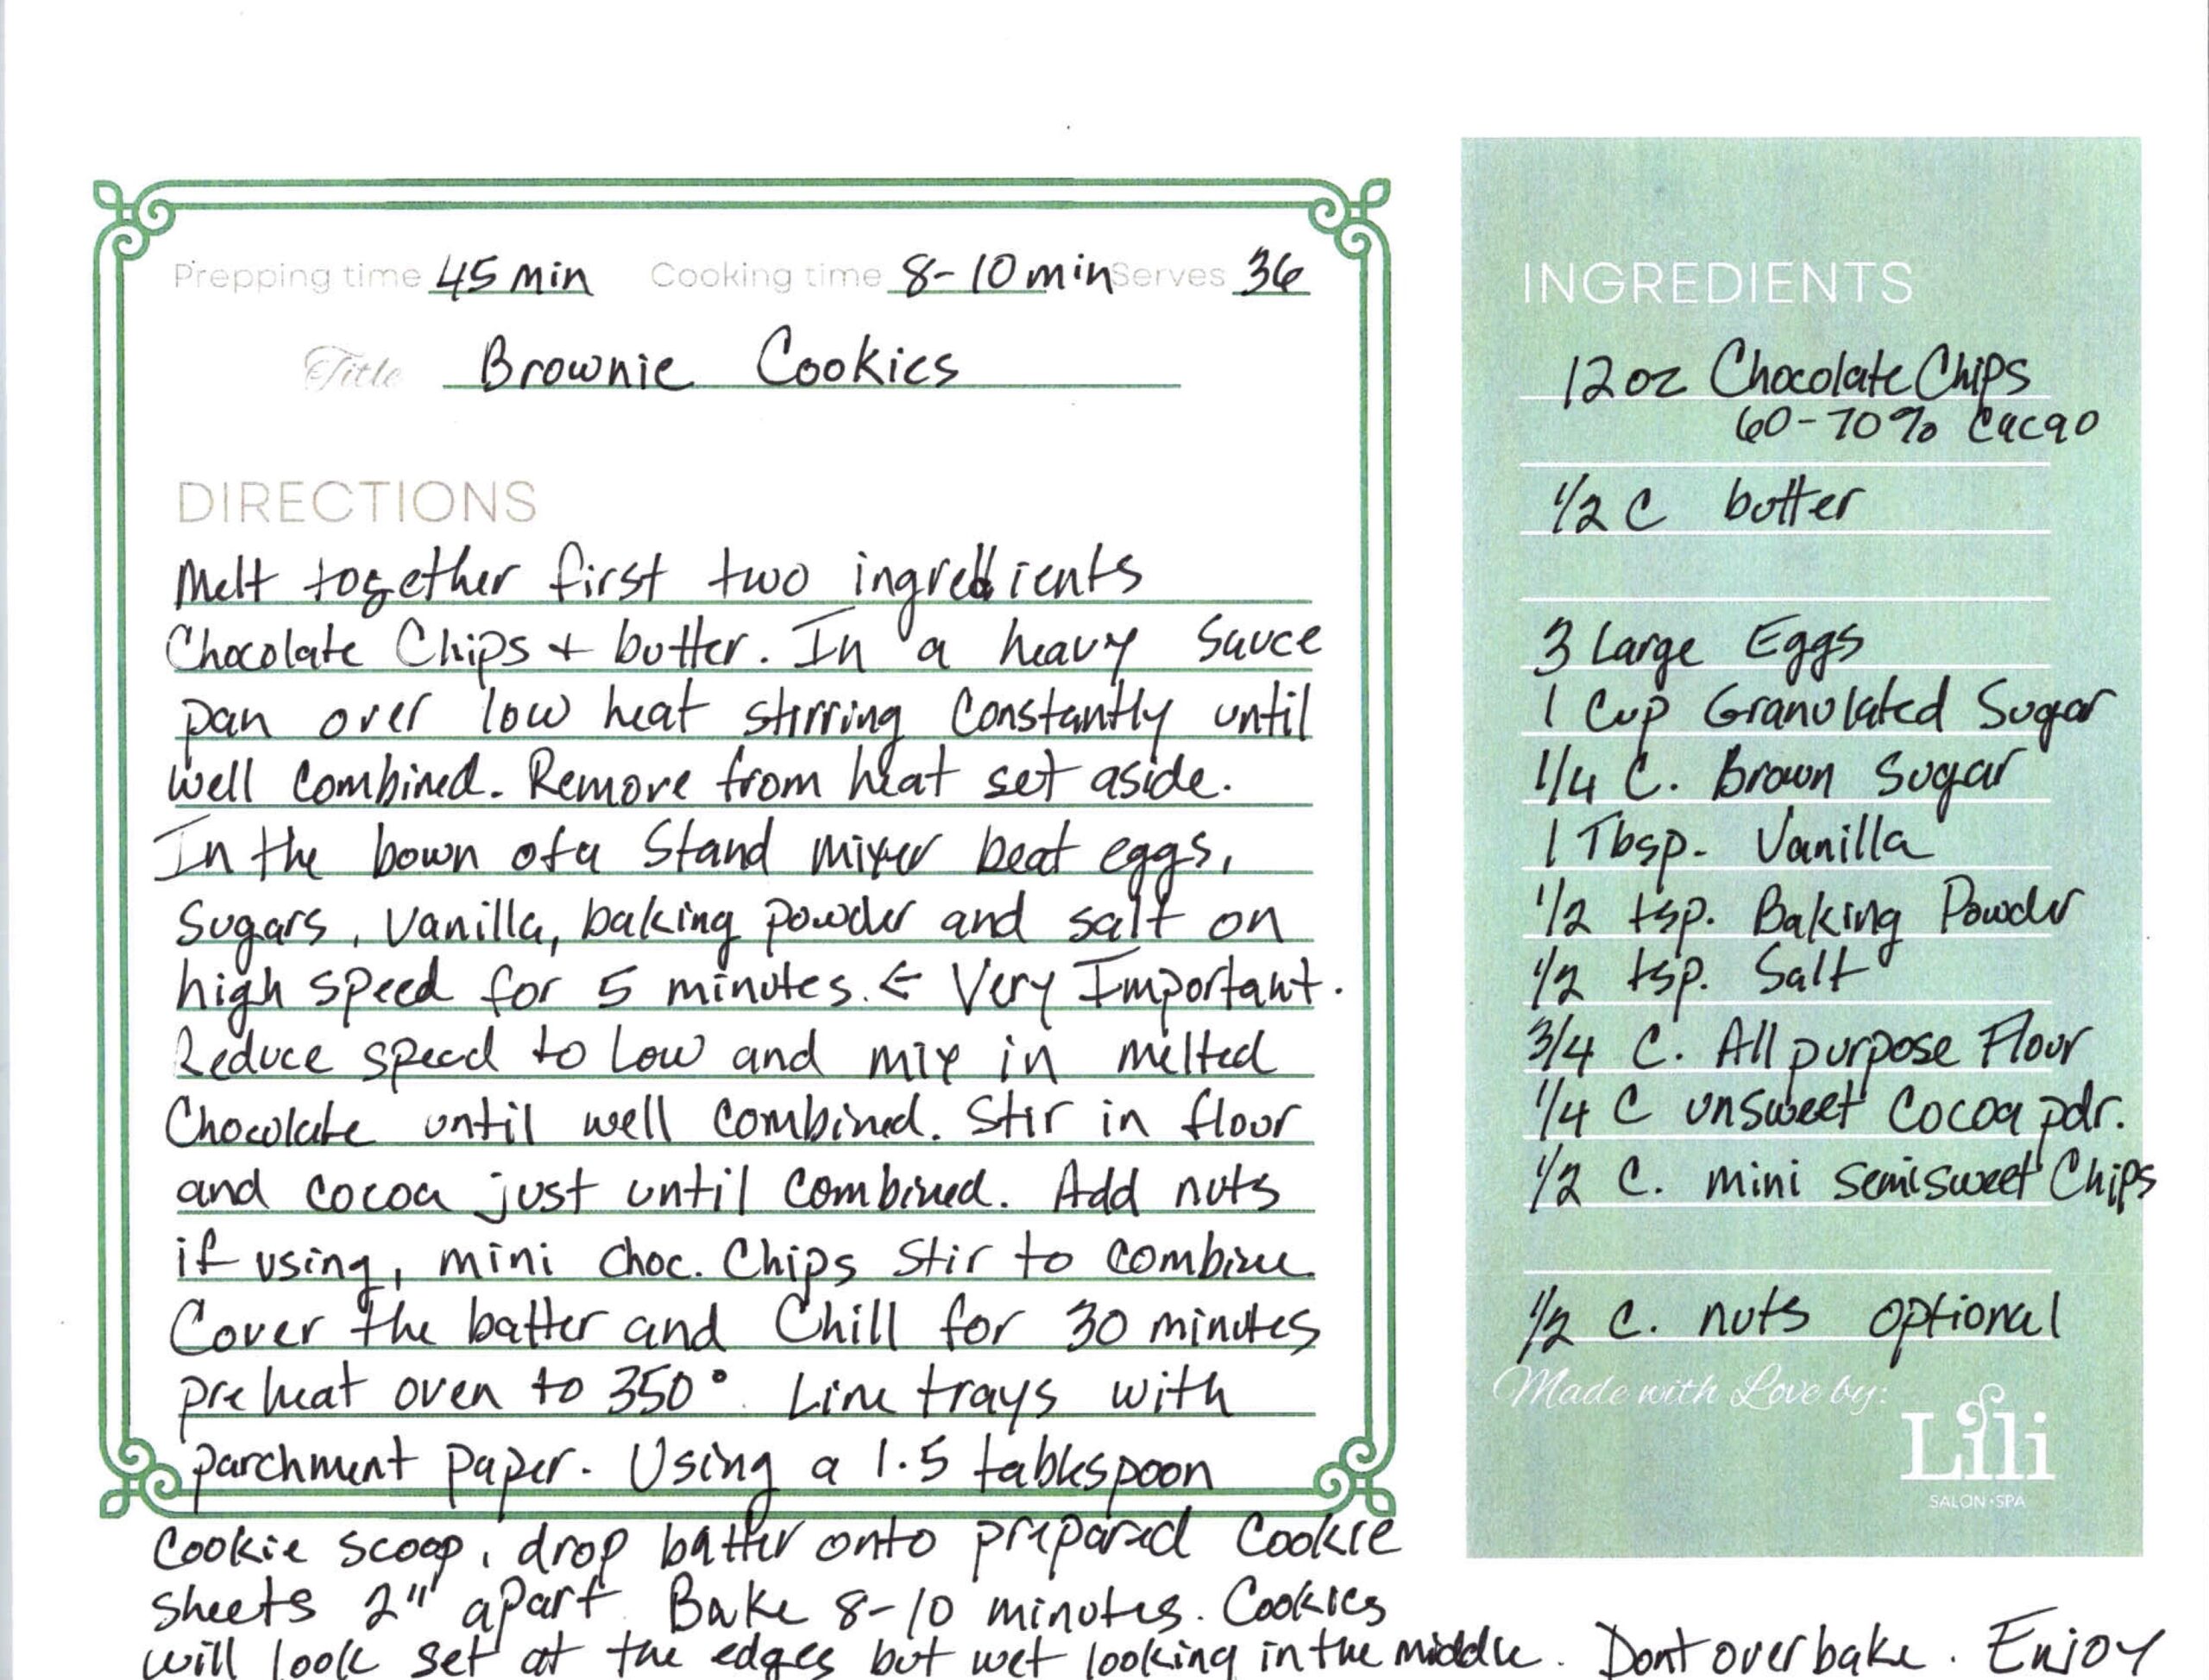 Prepping time 45 min Cooking time 8-10 min Serves 36
Title Brownie Cookies
DIRECTIONS
Melt together first two ingredients
Chocolate Chips + butter. In a heavy sauce
pan over low heat stirring constantly until
well combined. Remove from heat set aside.
In the bown of a Stand mixer beat eggs,
Sugars, Vanilla, baking powder and salt on
high speed for 5 minutes. ← Very Important.
Reduce speed to Low and mix in melted
Chocolate until well combined. Stir in flour
and cocoa just until combined. Add nuts
if using, mini choc. Chips Stir to combine.
Cover the batter and Chill for 30 minutes
preheat oven to 350° Line trays with
parchment paper. Using a 1.5 tablespoon
cookie scoop, drop batter onto prepared Cookie
sheets 2" apart. Bake 8-10 minutes. Cookies
will look set at the edges but wet looking in the middle. Dont overbake. Enjoy
INGREDIENTS
12 oz Chocolate Chips
60-70% Cacao
1/2 C butter
3 Large Eggs
1 Cup Granulated Sugar
1/4 C. Brown Sugar
1 Tbsp. Vanilla
1/2 tsp. Baking Powder
1/2 tsp. Salt
3/4 C. All purpose Flour
1/4 C unsweet Cocoa pdr.
1/2 C. mini semisweet Chips
1/2 C. nuts optional
Made with Love by:
Lili
SALON•SPA